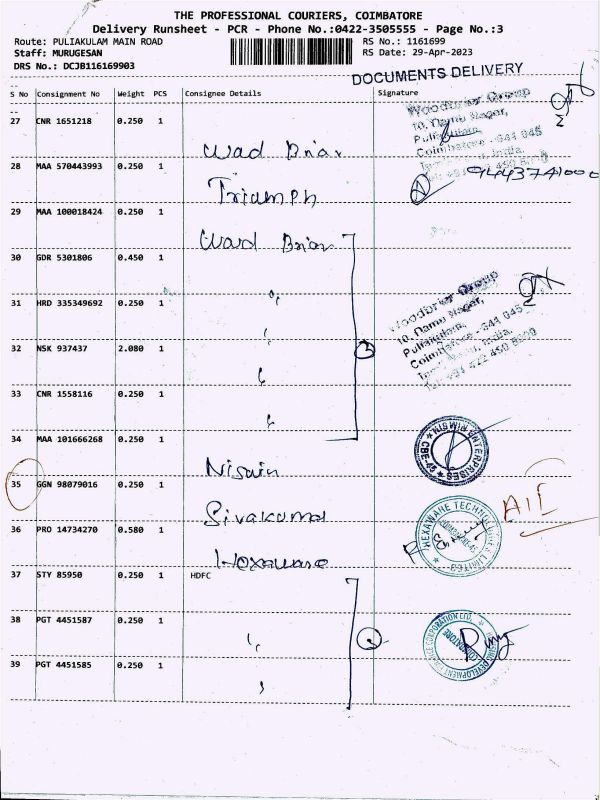 THE PROFESSIONAL COURIERS, COIMBATORE
Delivery Runsheet - PCR - Phone No.:0422-3505555 - Page No.:3
Route: PULIAKULAM MAIN ROAD
RS No.: 1161699
Staff: MURUGESAN
RS Date: 29-Apr-2023
DRS No.: DCJB116169903
DOCUMENTS DELIVERY
S No Consignment No Weight PCS Consignee Details Signature
27 CNR 1651218 0.250 1
Woodbriar Group
10, Nanu Nagar,
Puliakulam,
Coimbatore - 641 045
Tamil Nadu, India.
Ward Briar
28 MAA 570443993 0.250 1
9443741000
Triumph
29 MAA 100018424 0.250 1
Ward Briar
30 GDR 5301806 0.450 1
31 HRD 335349692 0.250 1
Woodbriar Group
10, Nanu Nagar,
Puliakulam,
Coimbatore - 641 045
Tamil Nadu, India.
Tel: +91 422 450 5000
32 NSK 937437 2.080 1
3
33 CNR 1558116 0.250 1
34 MAA 101666268 0.250 1
ENTERPRISES
CBE-45
35 GGN 98079016 0.250 1
Sivakumar
HEXAWARE TECHNOLOGIES LIMITED
36 PRO 14734270 0.580 1
Hexaware
37 STY 85950 0.250 1 HDFC
38 PGT 4451587 0.250 1
HOUSING DEVELOPMENT FINANCE CORPORATION LTD.
COIMBATORE
39 PGT 4451585 0.250 1